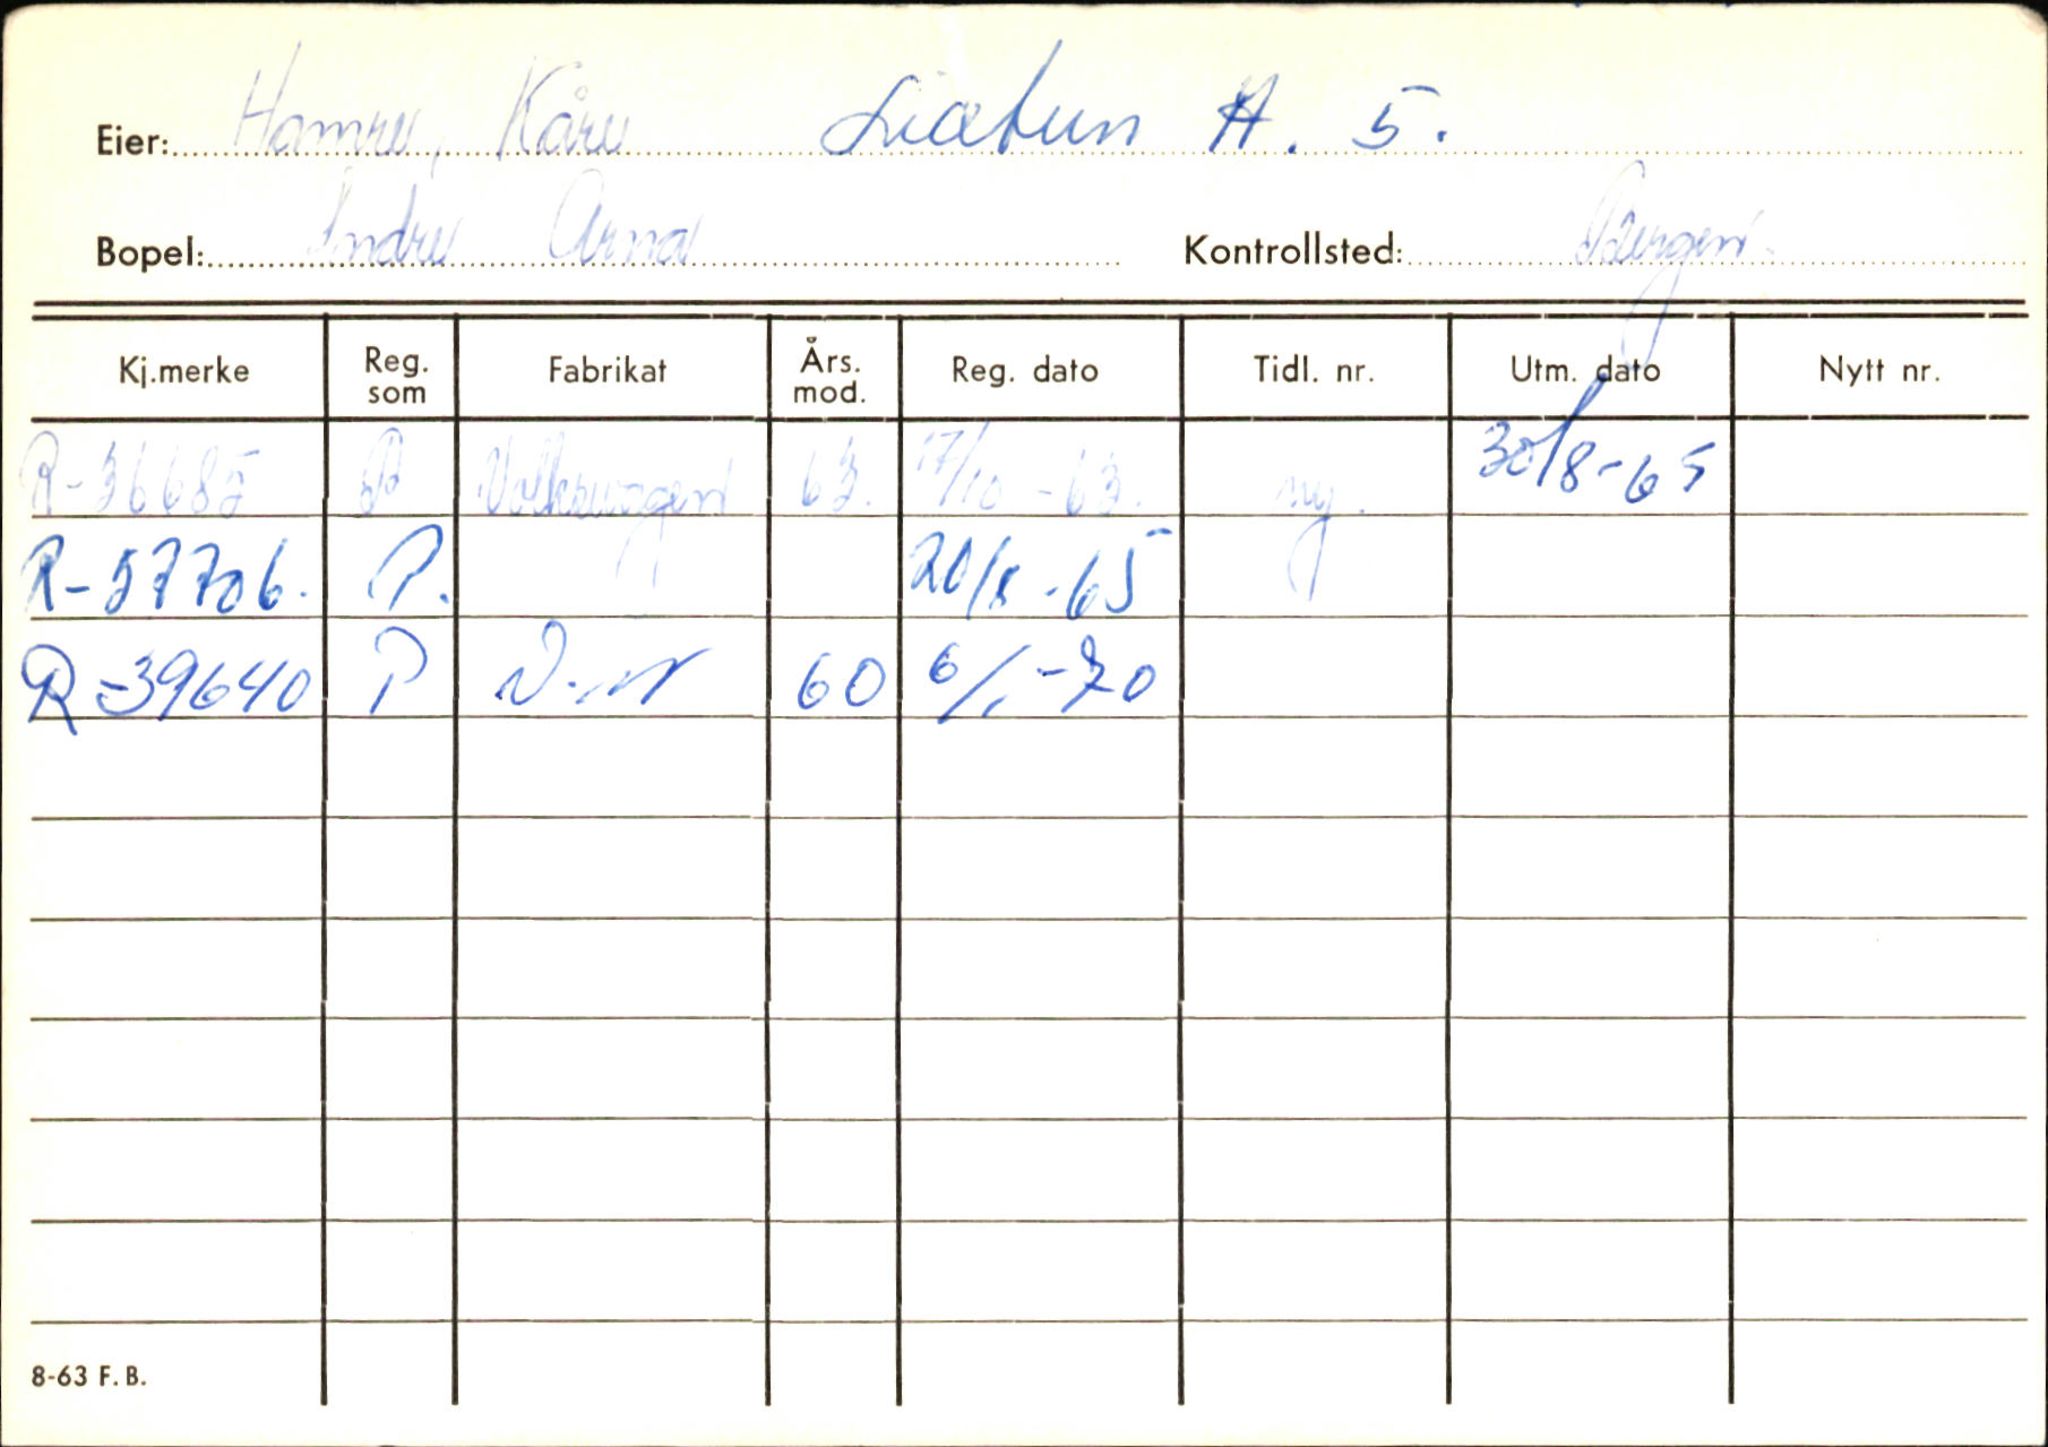 Eier: Hamre, Kåre Liatun A. 5.
Bopel: Indre Arna Kontrollsted: Bergen
Kj.merke Reg. som Fabrikat Års. mod. Reg. dato Tidl. nr. Utm. dato Nytt nr.
R-36685 P Volkswagen 63. 17/10-63. ny. 30/8-65
R-57706. P. 20/8-65
R-39640 P 60 6/1-70
8-63 F.B.